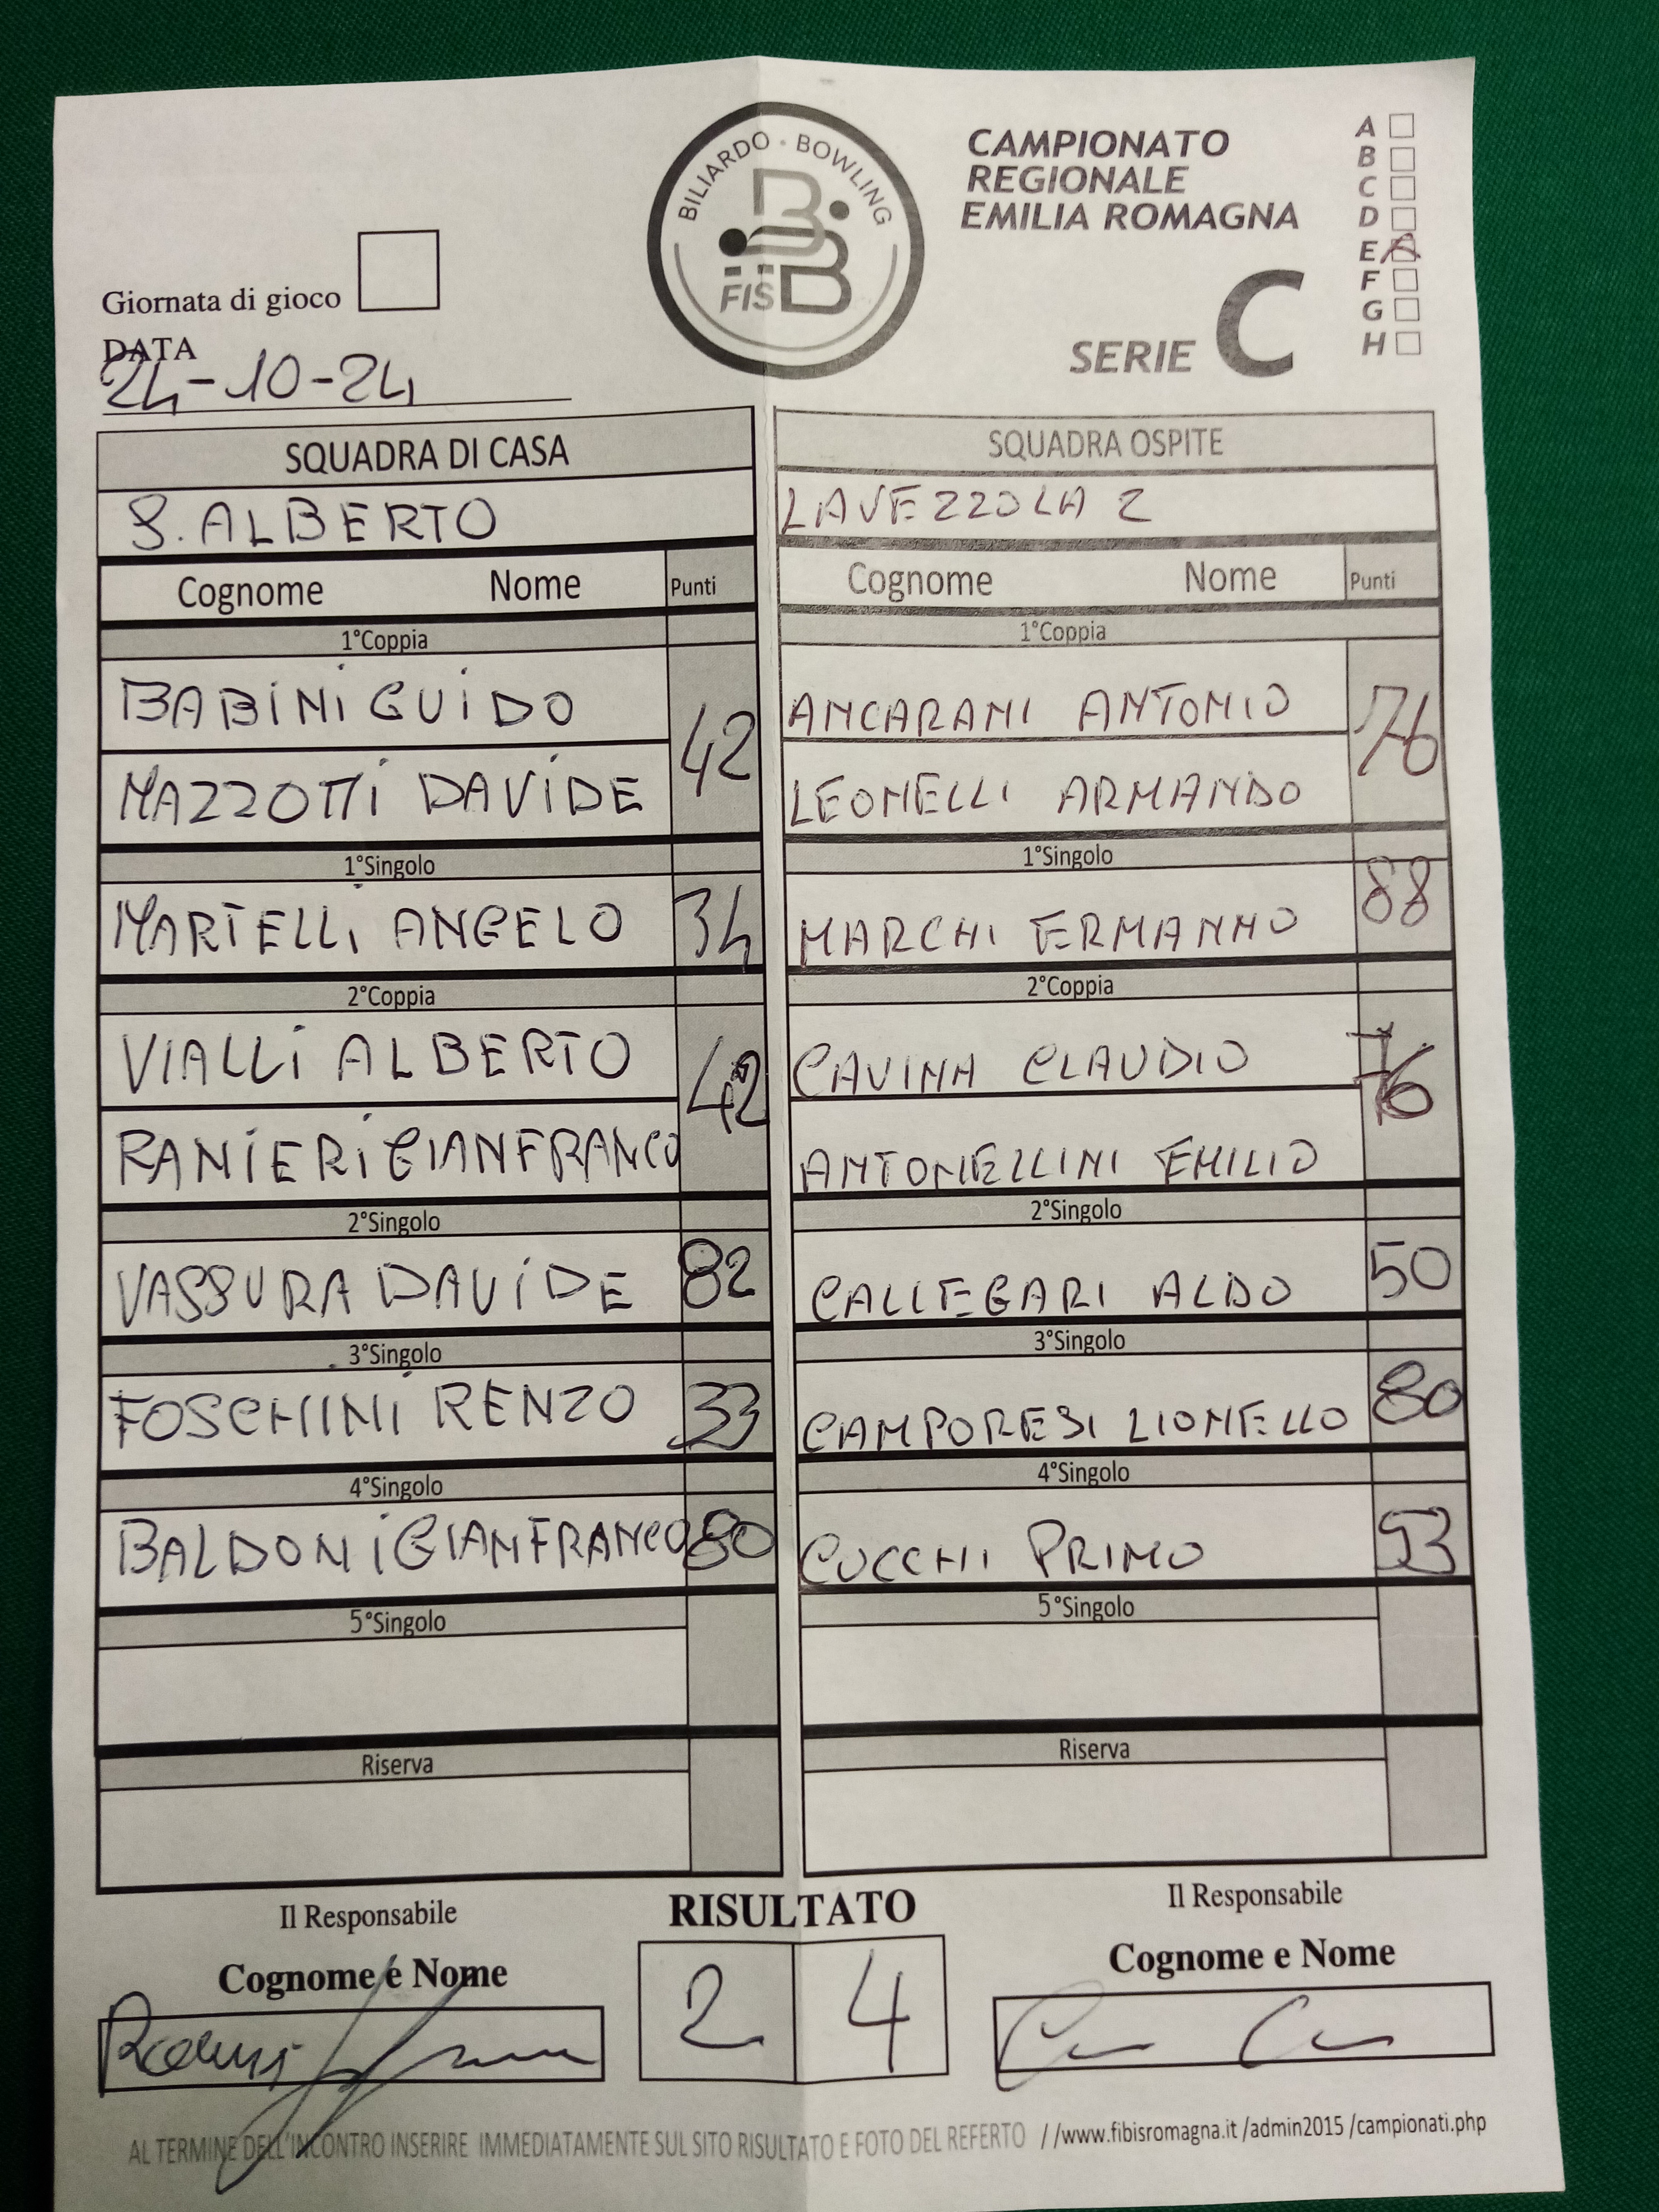 BILIARDO · BOWLING
FISBB
CAMPIONATO
REGIONALE
EMILIA ROMAGNA
SERIE C
A
B
C
D
E
F
G
H
Giornata di gioco
DATA
24-10-24
SQUADRA DI CASA
S. ALBERTO
Cognome Nome Punti
1°Coppia
BABINI GUIDO 42
MAZZOTTI DAVIDE
1°Singolo
MARTELLI ANGELO 34
2°Coppia
VIALLI ALBERTO 42
RANIERI GIANFRANCO
2°Singolo
VASSURA DAVIDE 82
3°Singolo
FOSCHINI RENZO 33
4°Singolo
BALDONI GIANFRANCO 80
5°Singolo
Riserva
SQUADRA OSPITE
LAVEZZOLA 2
Cognome Nome Punti
1°Coppia
ANCARANI ANTONIO 76
LEONELLI ARMANDO
1°Singolo
MARCHI ERMANNO 88
2°Coppia
CAVINA CLAUDIO 76
ANTONELLINI EMILIO
2°Singolo
CALLEGARI ALDO 50
3°Singolo
CAMPORESI LIONELLO 80
4°Singolo
CUCCHI PRIMO 53
5°Singolo
Riserva
Il Responsabile
Cognome e Nome
RISULTATO
2 4
Il Responsabile
Cognome e Nome
AL TERMINE DELL'INCONTRO INSERIRE IMMEDIATAMENTE SUL SITO RISULTATO E FOTO DEL REFERTO //www.fibisromagna.it /admin2015 /campionati.php